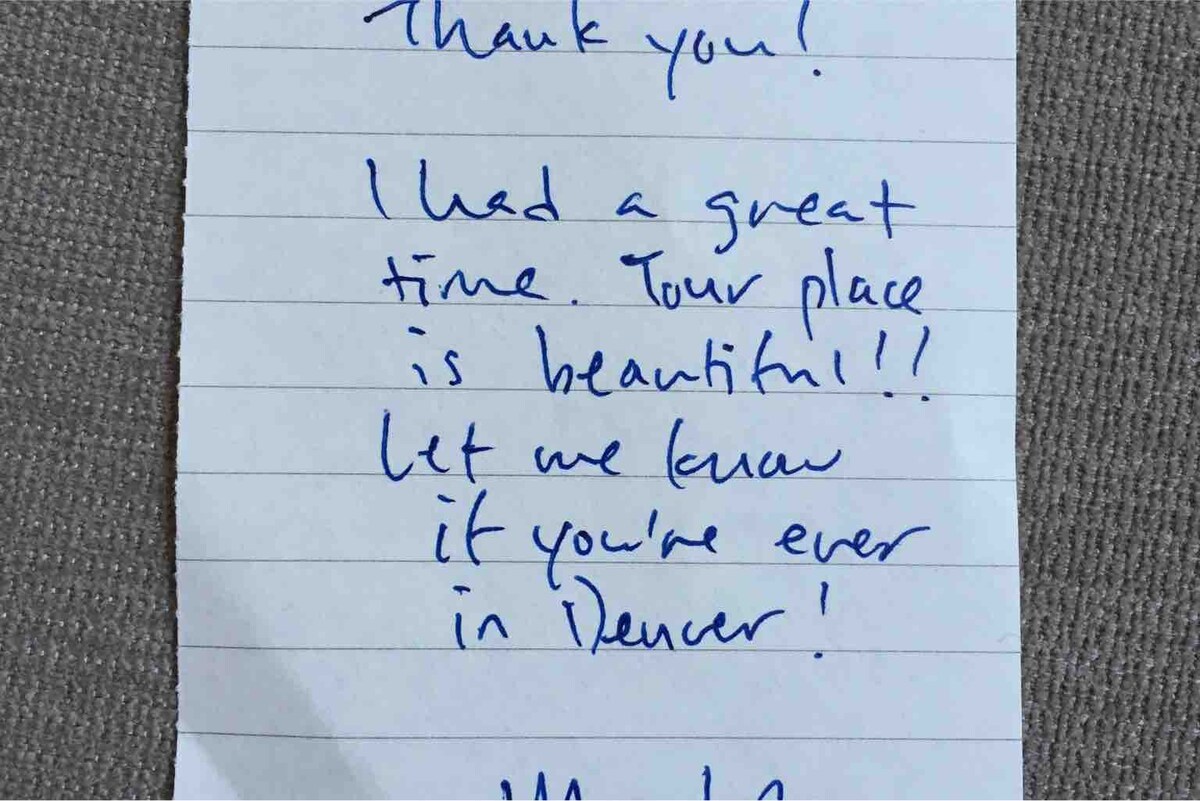 Thank you!
I had a great
time. Your place
is beautiful!!
Let me know
if you've ever
in Denver!